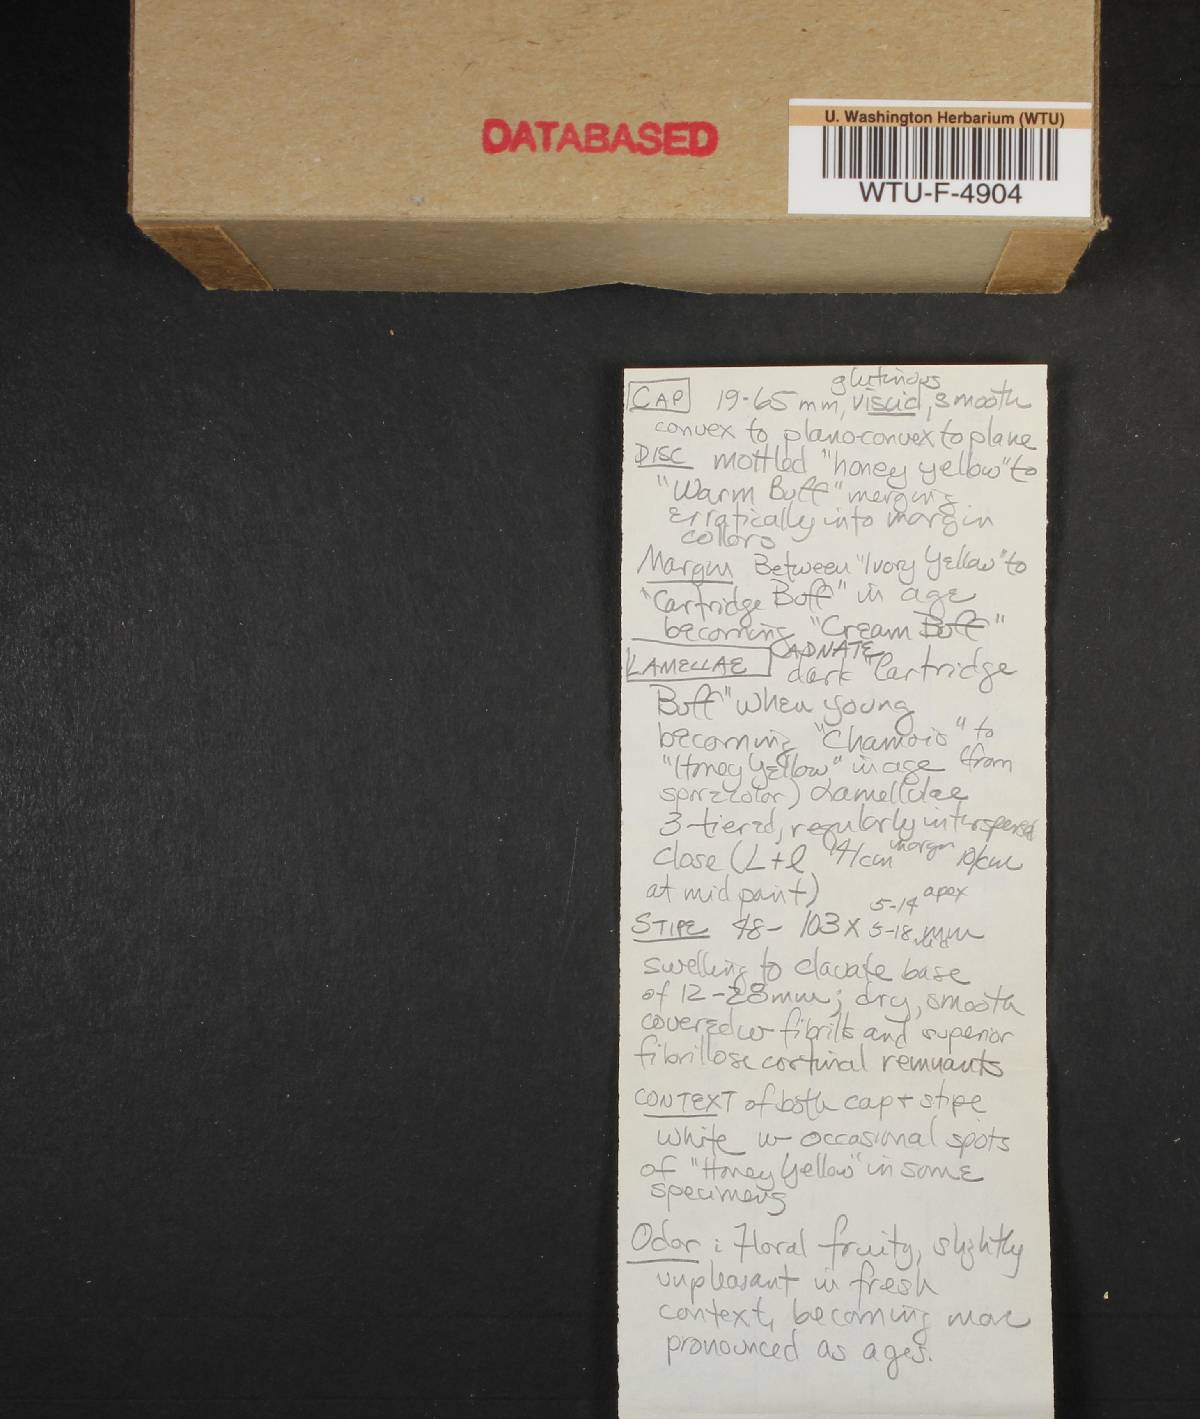 DATABASED
U. Washington Herbarium (WTU)
WTU-F-4904
glutinous
CAP 19-65 mm, viscid, smooth
convex to plano-convex to plane
DISC mottled "honey yellow" to
"Warm Buff" merging
erratically into margin
collors
Margin Between "Ivory Yellow" to
"Cartridge Buff" in age
becoming "Cream Buff"
ADNATE
LAMELLAE dark "Cartridge
Buff" when young
becoming "Chamois" to
"Honey Yellow" in age (from
spore color) Lamellulae
3-tiered, regularly interspersed
close (L+l 14/cm margin /cm
at mid point)
5-14 apex
STIPE 48-103 x 5-18 mm
swelling to clavate base
of 12-28mm; dry, smooth
covered w fibrills and superior
fibrillose cortinal remnants
CONTEXT of both cap + stipe
white w occasional spots
of "Honey Yellow" in some
specimens
Odor: Floral fruity, slightly
unpleasant in fresh
context, becoming more
pronounced as ages.